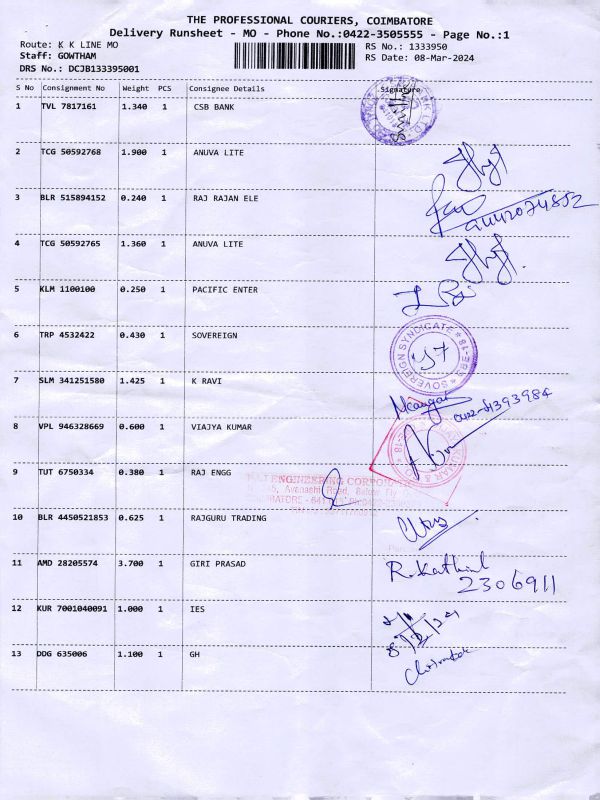 THE PROFESSIONAL COURIERS, COIMBATORE
Delivery Runsheet - MO - Phone No.:0422-3505555 - Page No.:1
Route: K K LINE MO
RS No.: 1333950
Staff: GOWTHAM
RS Date: 08-Mar-2024
DRS No.: DCJB133395001
S No Consignment No Weight PCS Consignee Details Signature
1 TVL 7817161 1.340 1 CSB BANK
2 TCG 50592768 1.900 1 ANUVA LITE
3 BLR 515894152 0.240 1 RAJ RAJAN ELE
9442074852
4 TCG 50592765 1.360 1 ANUVA LITE
5 KLM 1100100 0.250 1 PACIFIC ENTER
6 TRP 4532422 0.430 1 SOVEREIGN
SOVEREIGN SYNDICATE * CBE-18 *
7 SLM 341251580 1.425 1 K RAVI
8 VPL 946328669 0.600 1 VIAJYA KUMAR
9 TUT 6750334 0.380 1 RAJ ENGG
ENGINEERING CORPORATION
Avanashi Road,
10 BLR 4450521853 0.625 1 RAJGURU TRADING
11 AMD 28205574 3.700 1 GIRI PRASAD
R. Kathir
2306911
12 KUR 7001040091 1.000 1 IES
13 DDG 635006 1.100 1 GH